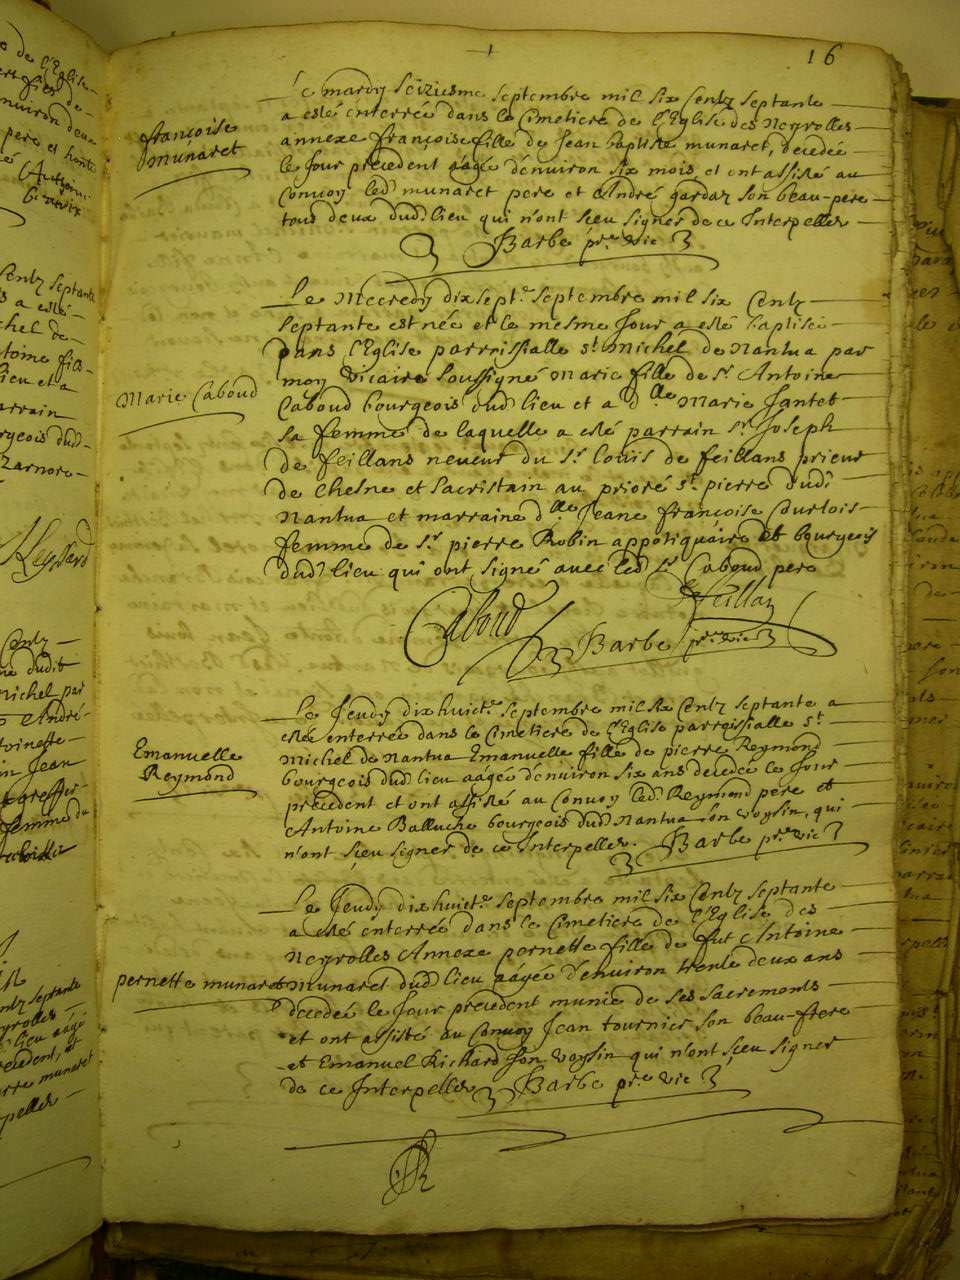 16
françoise
munaret
Le mardy seiziesme septembre mil six Centz septante
a esté enterrée dans le Cimetiere de l'Eglise des Neyrolles
annexe françoise fille de Jean baptiste munaret, decedée
le Jour precedent aagée d'environ six mois et ont assisté au
Convoy led. munaret pere et André gardaz son beau-pere
tous deux dud. lieu qui n'ont sçeu signer de ce Interpellez
Barbe pre. vic
Marie Caboud
Le Mecredy dix sept.e septembre mil six Centz
septante est née et le mesme Jour a esté baptisée
Dans l'Eglise parrissialle st. Michel de Nantua par
moy vicaire soussigné Marie fille de Sr. Antoine
Caboud bourgeois dud. lieu et a dlle Marie Jantet
sa femme de laquelle a esté parrain Sr. Joseph
de feillans neveur du Sr. Louis de feillans prieur
de Chesne et sacristain au prioré st. pierre dud.
Nantua et marraine dlle Jeane françoise Courtois
femme de Sr. pierre Robin appotiquaire et bourgeois
dud. lieu qui ont signé avec led. Sr. Caboud pere
Caboud
feillan
Barbe pre. vic
Emanuelle
Reymond
Le Jeudy dix huict.e septembre mil six Centz septante a
esté enterrée dans le Cimetiere de l'Eglise parroissialle st.
Michel de Nantua Emanuelle fille de pierre Reymond
bourgeois dud. lieu aagée d'environ six ans decedée le Jour
precedent et ont assisté au Convoy led. Reymond pere et
Antoine Balluche bourgeois dud. Nantua son voysin, qui
n'ont sçeu signer de ce Interpellez. Barbe pre. vic
pernette munaret
Le Jeudy dix huict.e septembre mil six Centz septante
a esté enterrée dans le Cimetiere de l'Eglise des
Neyrolles Annexe pernette fille de fut Antoine
Munaret dud. lieu aagée d'environ trente deux ans
decedée le Jour precedent munie de ses sacrements
et ont assisté au Convoy Jean tournier son beau-frere
et Emanuel Richard son voysin qui n'ont sçeu signer
de ce Interpellez Barbe pre. vic